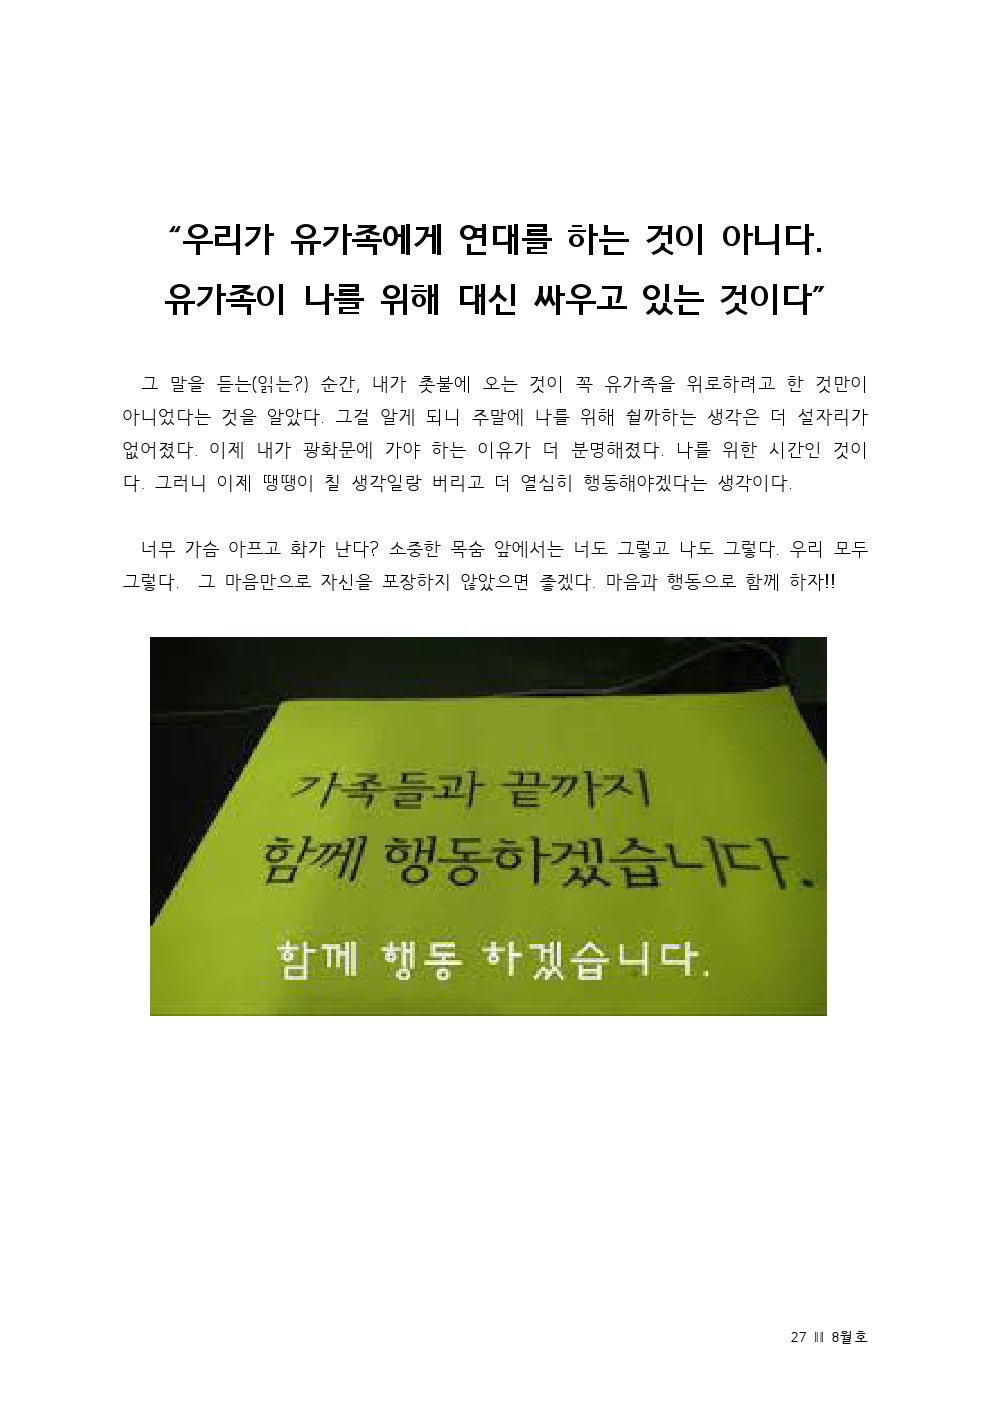 “우리가 유가족에게 연대를 하는 것이 아니다.
유가족이 나를 위해 대신 싸우고 있는 것이다”
그 말을 듣는(읽는?) 순간, 내가 촛불에 오는 것이 꼭 유가족을 위로하려고 한 것만이
아니었다는 것을 알았다. 그걸 알게 되니 주말에 나를 위해 쉴까하는 생각은 더 설자리가
없어졌다. 이제 내가 광화문에 가야 하는 이유가 더 분명해졌다. 나를 위한 시간인 것이
다. 그러니 이제 땡땡이 칠 생각일랑 버리고 더 열심히 행동해야겠다는 생각이다.
너무 가슴 아프고 화가 난다? 소중한 목숨 앞에서는 너도 그렇고 나도 그렇다. 우리 모두
그렇다. 그 마음만으로 자신을 포장하지 않았으면 좋겠다. 마음과 행동으로 함께 하자!!
가족들과 끝까지
함께 행동하겠습니다.
함께 행동 하겠습니다.
27 ⅠⅡ 8월호